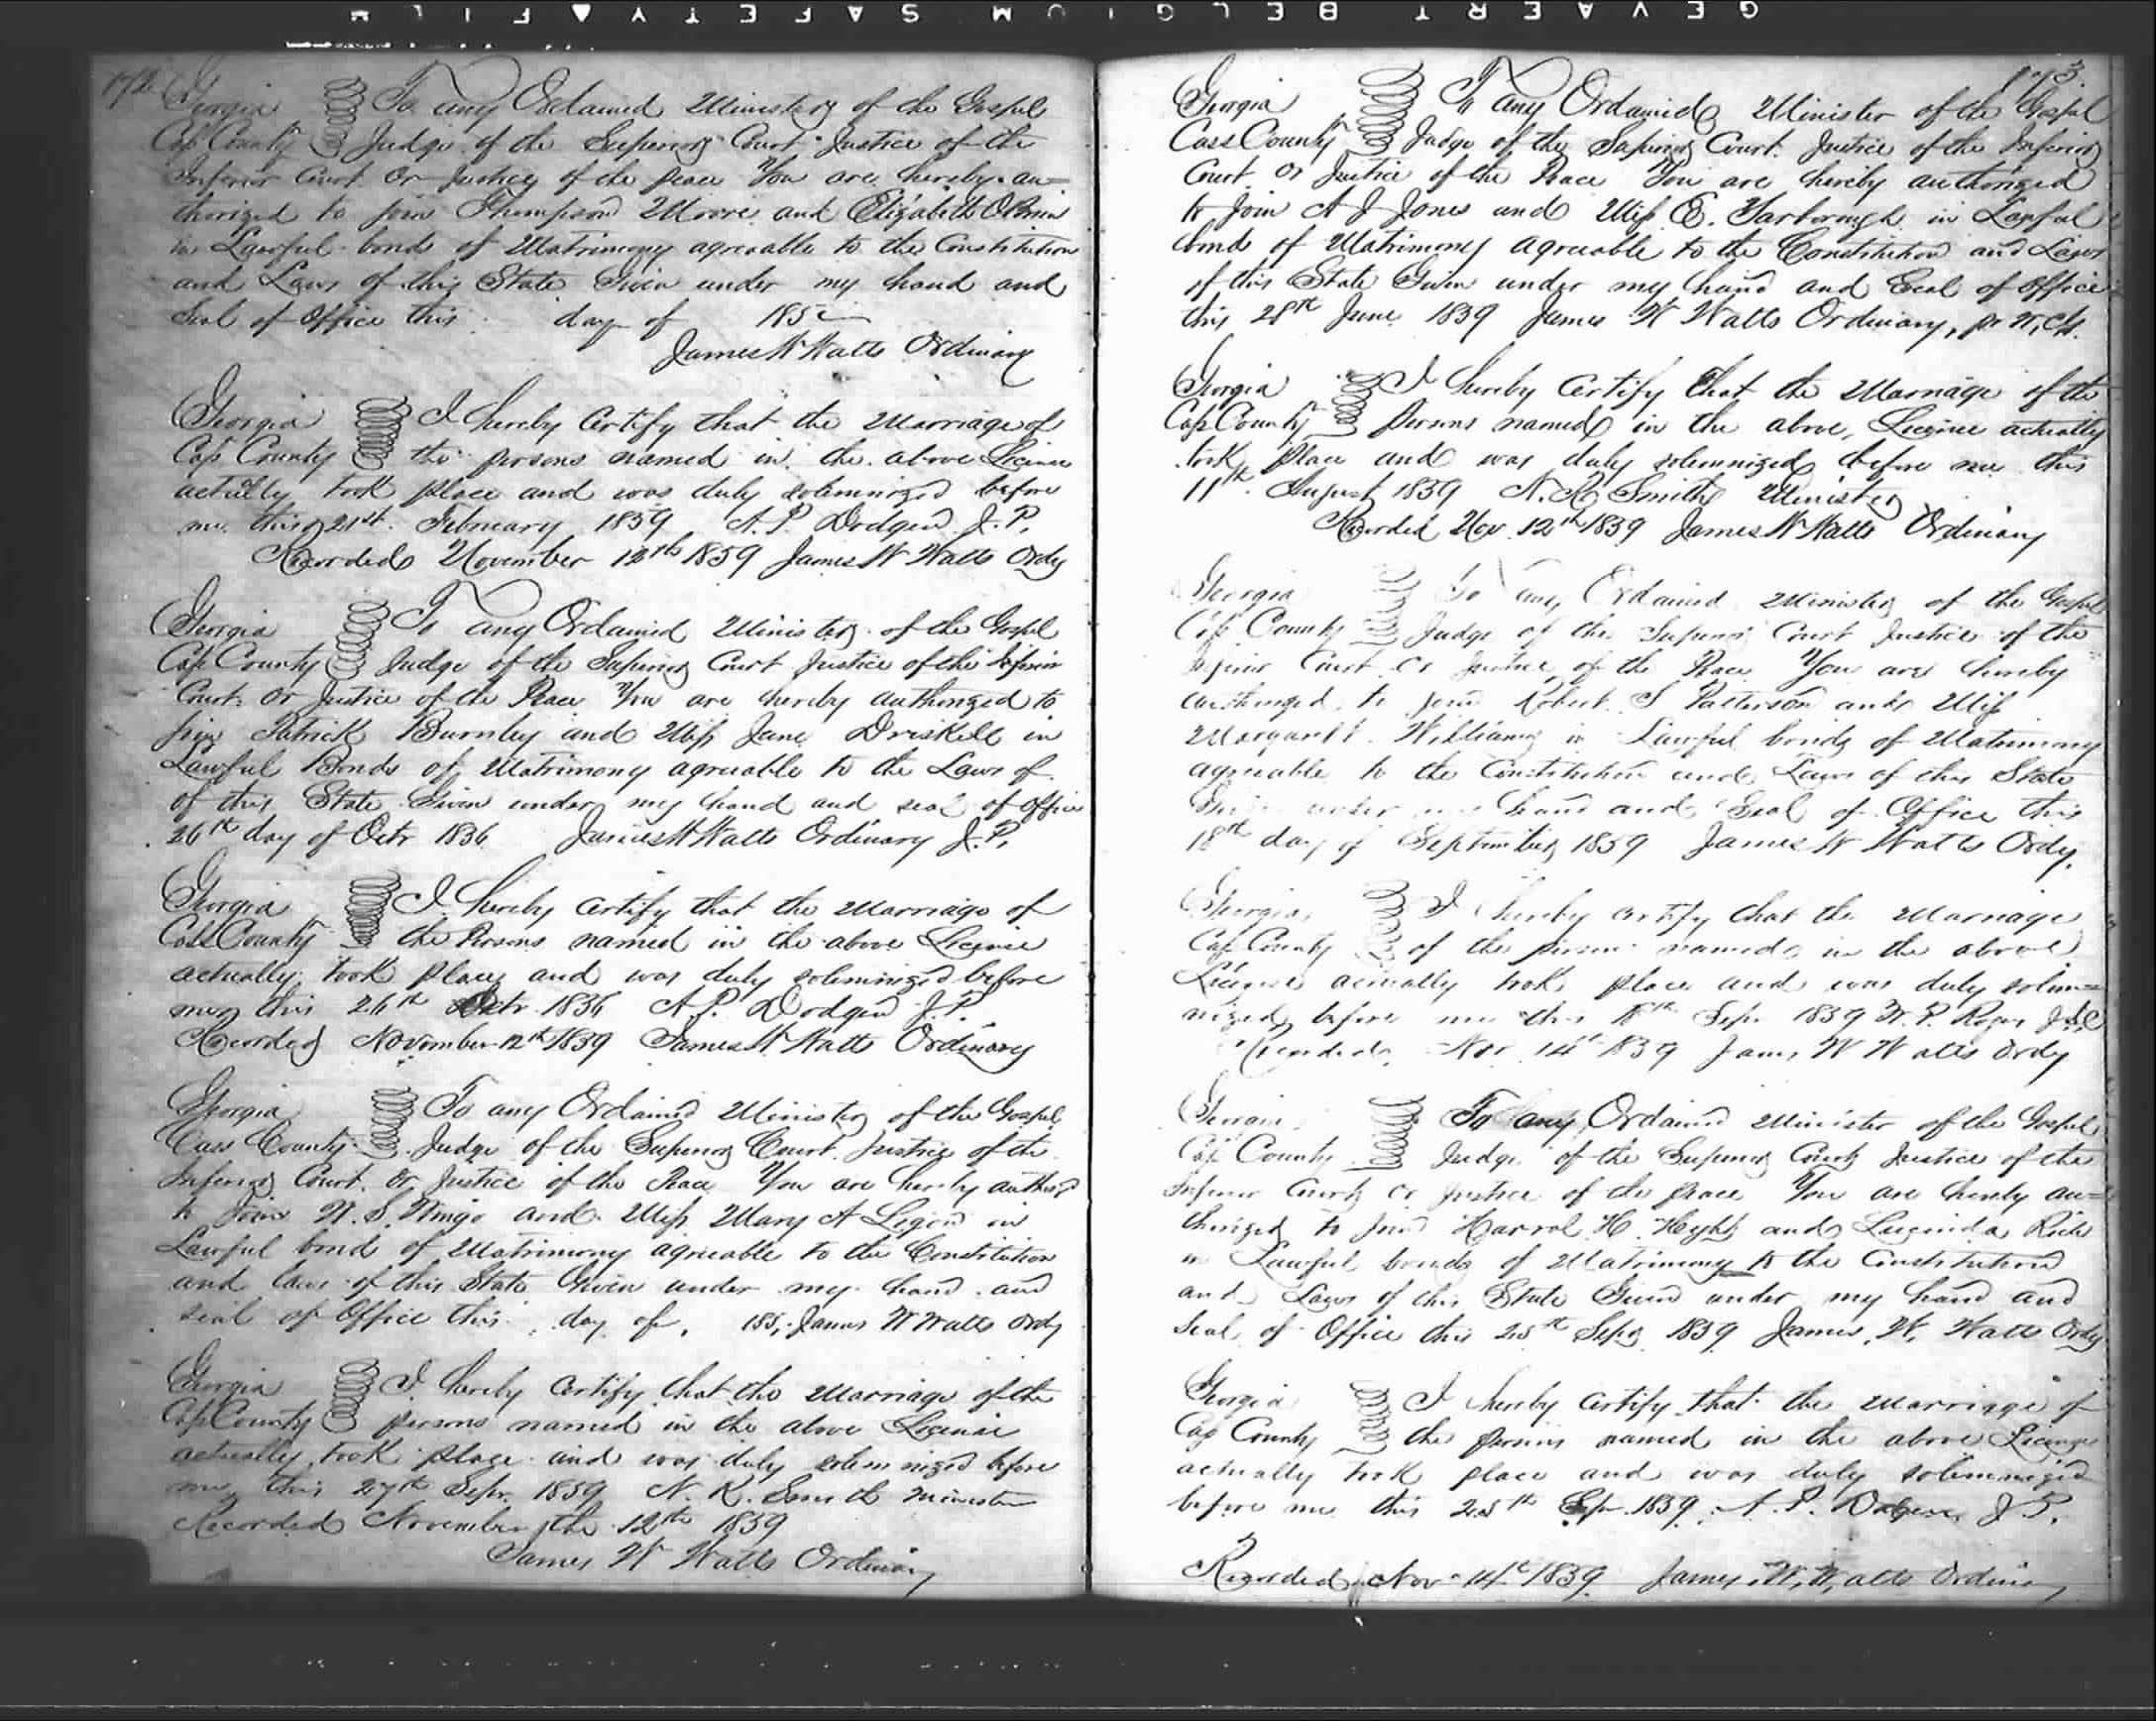 GEVAERT BELGIUM SAFETY FILM
172
Georgia To any Ordained Minister of the Gospel
Cass County Judge of the Superior Court Justice of the
Inferior Court Or Justice of the peace You are hereby au=
thorized to join Thompson Moore and Elizabeth
in Lawful bonds of Matrimony agreeable to the Constitution
and Laws of this State Given under my hand and
Seal of Office this day of 185
James W Watts Ordinary
Georgia I hereby Certify that the Marriage of
Cass County the persons named in the above License
actually took place and was duly solemnized before
me this 21st February 1859 A. P. Dodgen J. P.
Recorded November 12th 1859 James W Watts Ordy
Georgia To any Ordained Minister of the Gospel
Cass County Judge of the Superior Court Justice of the Inferior
Court Or Justice of the Peace You are hereby authorized to
join Patrick Burnley and Miss Jane Driskell in
Lawful Bonds of Matrimony agreeable to the Laws of
of this State Given under my hand and seal of office
26th day of Octr 1836 James W Watts Ordinary J. P.
Georgia I Hereby Certify that the Marriage of
Cass County the Persons named in the above License
actually took place and was duly solemnized before
me this 26th Octr 1836 A. P. Dodgen J. P.
Recorded November 12th 1859 James W. Watts Ordinary
Georgia To any Ordained Minister of the Gospel
Cass County Judge of the Superior Court Justice of the
Inferior Court Or Justice of the Peace You are hereby authord
to Join W. S. Wingo and Miss Mary A Ligon in
Lawful bond of Matrimony agreeable to the Constitution
and laws of this State Given under my hand and
seal of Office this day of 185 James W Watts Ordy
Georgia I hereby Certify that the Marriage of the
Cass County persons named in the above License
actually took place and was duly solemnized before
me this 27th Sepr. 1859 N. K. Smith Minister
Recorded November the 12th 1859
James W Watts Ordinary
173
Georgia To any Ordained Minister of the Gospel
Cass County Judge of the Superior Court Justice of the Inferior
Court Or Justice of the Peace You are hereby authorized
to Join A J Jones and Miss E. Yarborough in Lawful
bond of Matrimony agreeable to the Constitution and Laws
of this State Given under my hand and Seal of office
this 28th June 1859 James W Watts Ordinary, pr
Georgia I hereby Certify that the Marriage of the
Cass County persons named in the above, License actually
took place and was duly solemnized before me this
11th August 1859 N. K Smith Minister
Recorded Nov 12th 1859 James W Watts Ordinary
Georgia To any Ordained Minister of the Gospel
Cass County Judge of the Superior Court Justice of the
Inferior Court Or Justice of the Peace You are hereby
authorized to join Robert S Patterson and Miss
Margarett Williams in Lawful bonds of Matrimony
agreeable to the Constitution and Laws of this State
Given under my hand and Seal of Office this
18th day of September 1859 James W Watts Ordy.
Georgia I hereby certify that the Marriage
Cass County of the persons named in the above
License actually took place and was duly solem=
nized before me this 18th Sep. 1859 W. P. Rogers
Recorded Nov 14th 1859 James W Watts Ordy
Georgia To any Ordained Minister of the Gospel
Cass County Judge of the Superior Court Justice of the
Inferior Court or Justice of the peace You are hereby au=
thorized to Join Harral H. Hight and Lucinda
in Lawful bonds of Matrimony to the Constitution
and Laws of this State Given under my hand and
Seal of Office this 25th Sepr 1859 James, W, Watts Ordy
Georgia I hereby certify that the Marriage of
Cass County the persons named in the above License
actually took place and was duly solemnized
before me this 25th Sepr 1859. A. P. Dodgen J P.
Recorded Nov 14th 1859 James W. Watts Ordinary